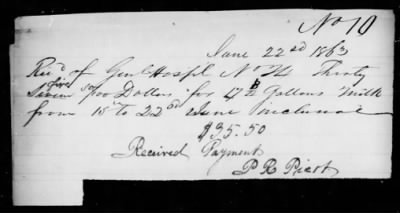 No 10
June 22nd 1863
Recd of Genl Hospl No 24 Thirty
five 50/100 Dollars for 17 Gallons Milk
from 15th to 22nd June inclusive
$35.50
Received Payment
P R Picot